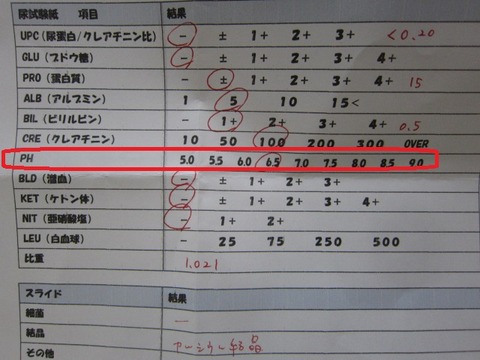 尿試験紙 項目 結果
UPC(尿蛋白/クレアチニン比) - ± 1+ 2+ 3+ <0.20
GLU(ブドウ糖) - ± 1+ 2+ 3+ 4+
PRO(蛋白質) - ± 1+ 2+ 3+ 4+ 15
ALB(アルブミン) 1 5 10 15<
BIL(ビリルビン) - 1+ 2+ 3+ 4+ 0.5
CRE(クレアチニン) 10 50 100 200 300 OVER
PH 5.0 5.5 6.0 6.5 7.0 7.5 8.0 8.5 9.0
BLD(潜血) - ± 1+ 2+ 3+
KET(ケトン体) - ± 1+ 2+ 3+ 4+
NIT(亜硝酸塩) - 1+ 2+
LEU(白血球) - 25 75 250 500
比重 1.021
スライド 結果
細菌 -
結晶
その他